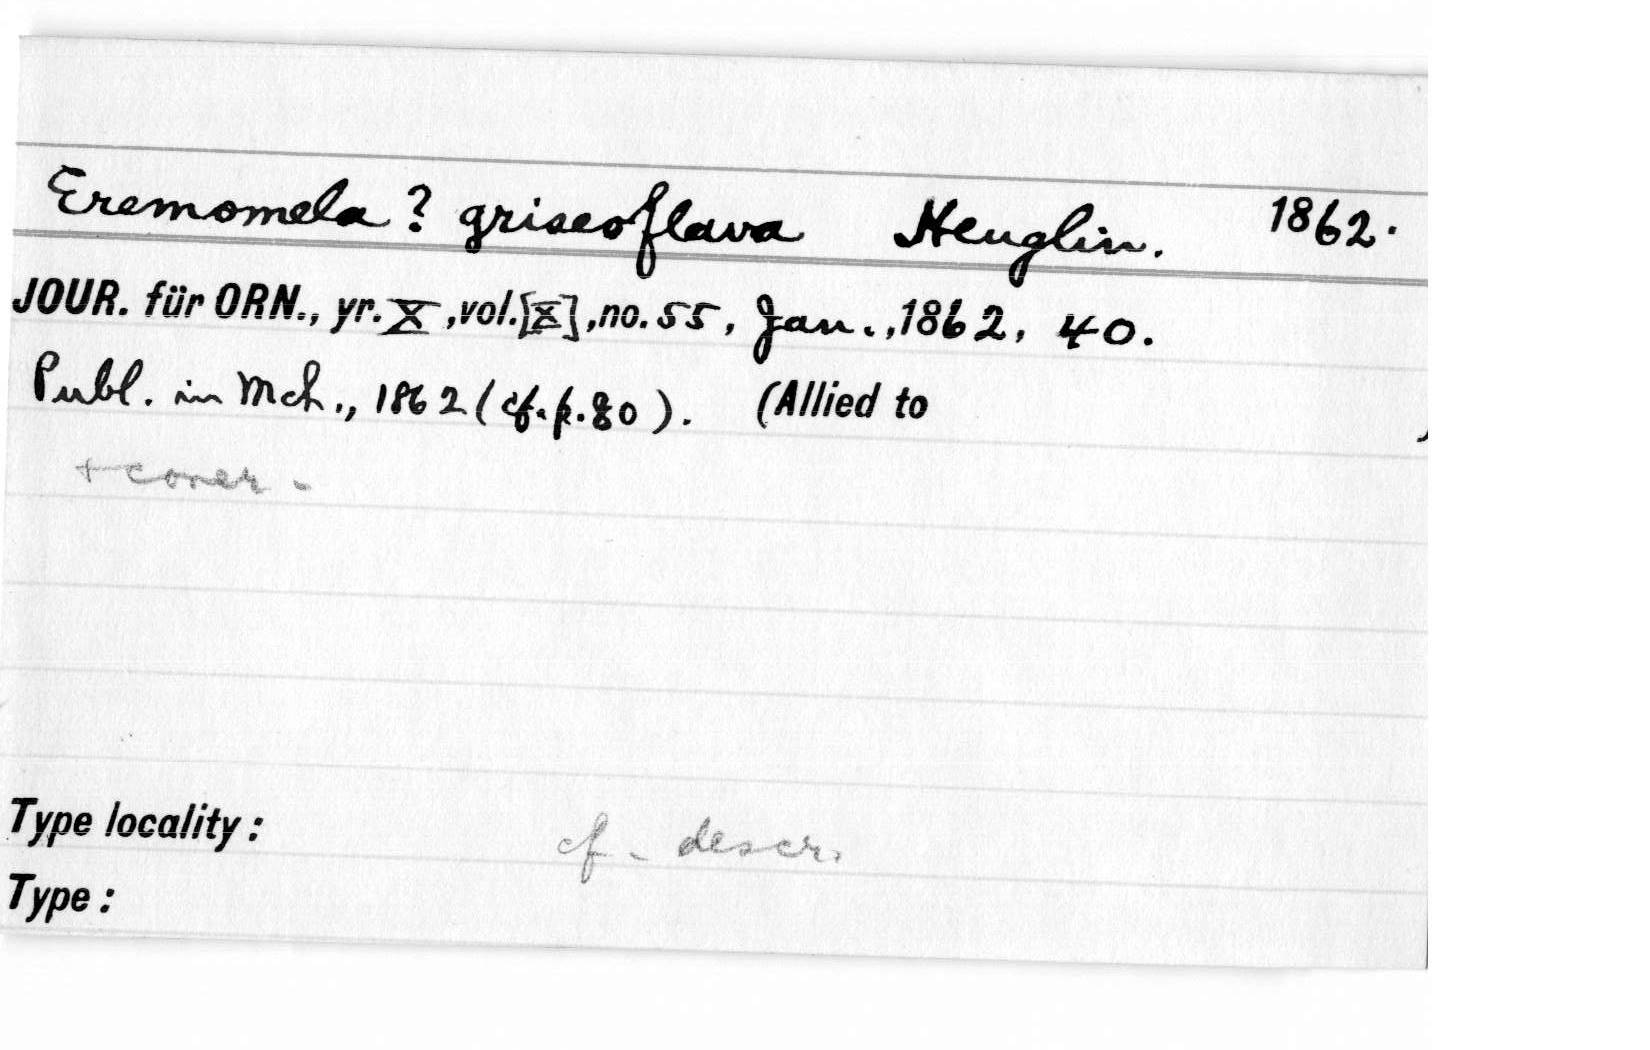 Eremomela ? griseoflava Heuglin. 1862.
JOUR. für ORN., yr. X, vol. [X], no. 55, Jan., 1862, 40.
Publ. in Mch., 1862 (cf. p. 80). (Allied to )
+ cover -
Type locality : cf. descr.
Type :